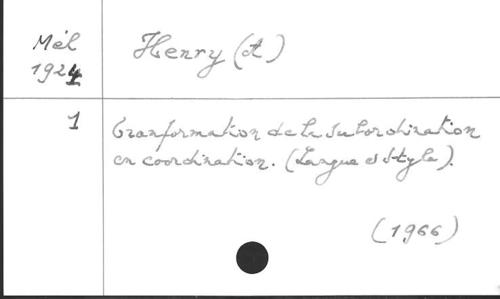 Mél
1924
Henry (A)
1
Transformation de la subordination
en coordination. (Langue et Style).
(1966)